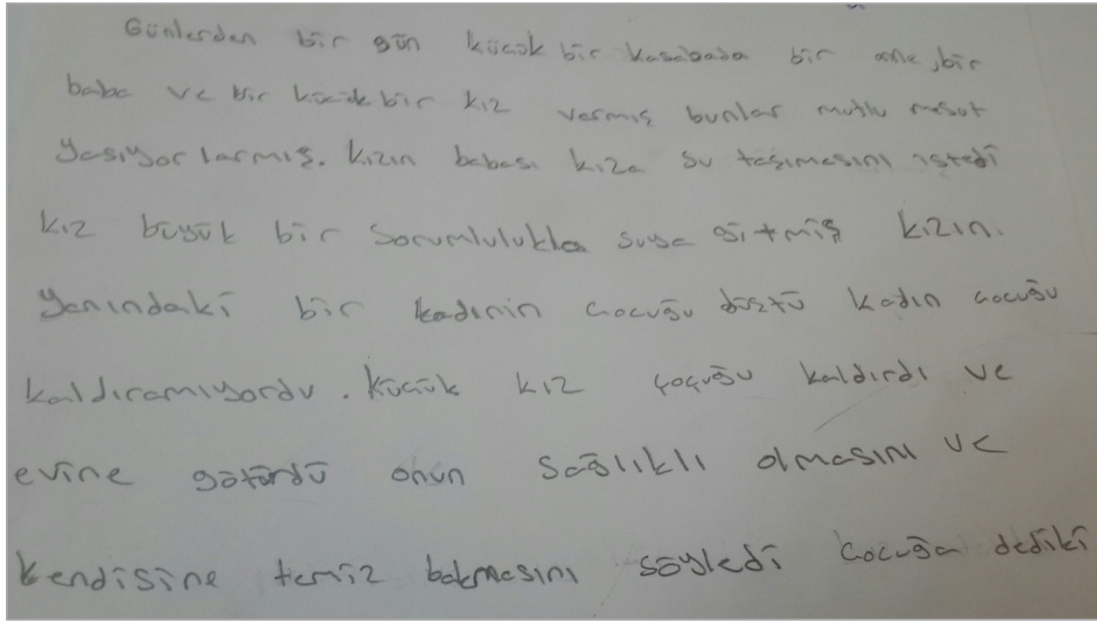 Günlerden bir gün küçük bir kasabada bir anne, bir
baba ve bir küçük bir kız varmış bunlar mutlu mesut
yaşıyorlarmış. kızın babası kıza su taşımasını istedi
kız büyük bir sorumlulukla suya gitmiş kızın.
yanındaki bir kadının çocuğu düştü kadın çocuğu
kaldıramıyordu. küçük kız çoçuğu kaldırdı ve
evine götürdü onun sağlıklı olmasını ve
kendisine temiz bakmasını söyledi çocuğa dediki